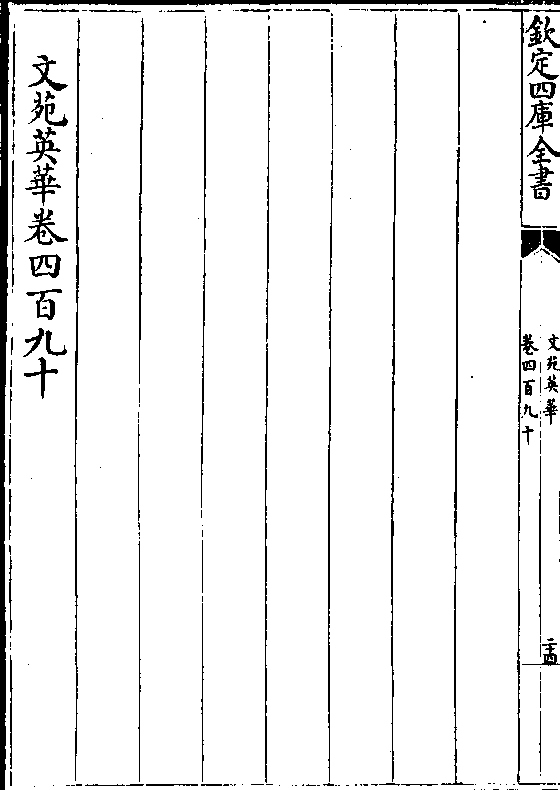 欽定四庫全書
文苑英華
卷四百九十
二十四
文苑英華卷四百九十